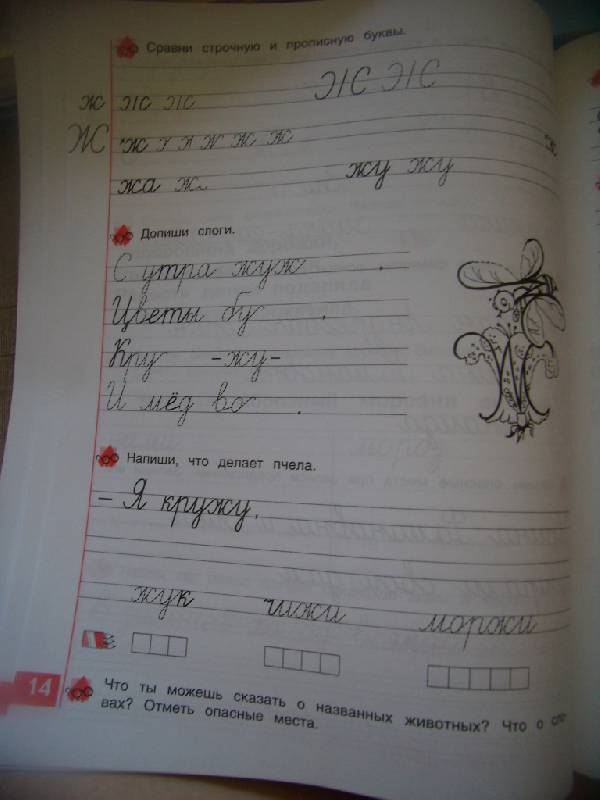 Сравни строчную и прописную буквы.
ж ж ж Ж Ж
Ж ж ж ж ж
жа ж жу жу
Допиши слоги.
С утра жуж .
Цветы бу .
Кру -жу-
И мёд во .
Напиши, что делает пчела.
– Я кружу.
жук чижи моржи
14
Что ты можешь сказать о названных животных? Что о сло
вах? Отметь опасные места.